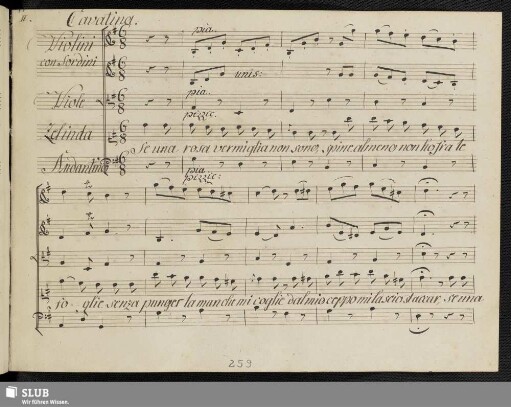 II.
Cavatina.
Violini
con Sordini
pia.
unis:
Viole
pia.
pizzic:
Zelinda
Se una rosa vermiglia non sono, spine almeno non ho fra le
Andantino
pia.
pizzic:
glie senza punger la man che mi coglie dal mio ceppo mi lascio staccar, se una
259
SLUB
Wir führen Wissen.